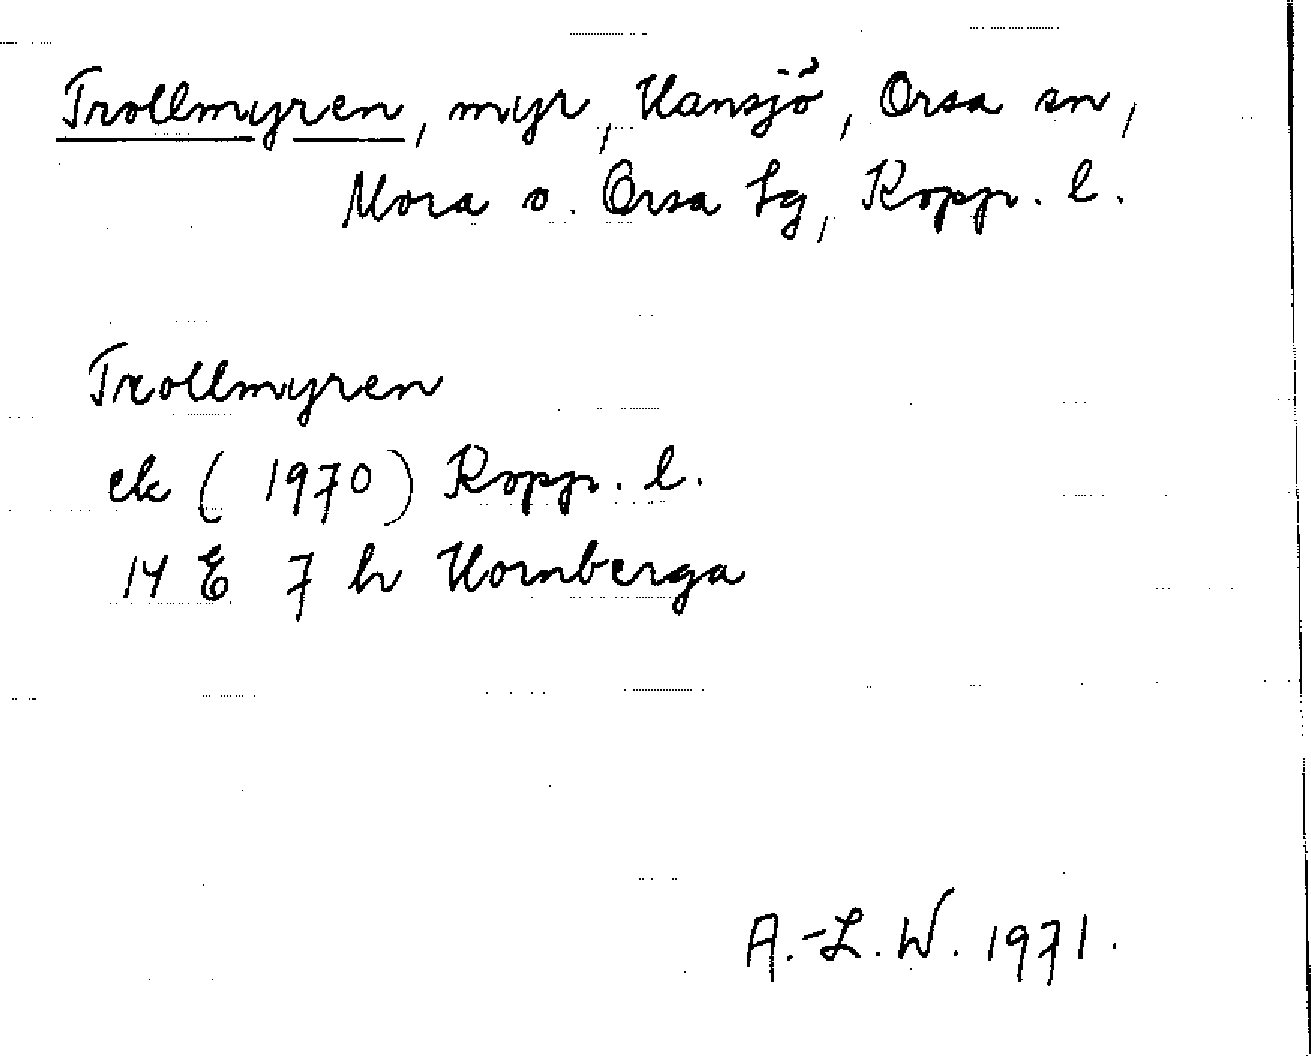 Trollmyren, myr, Hansjö, Orsa sn,
Mora o. Orsa tg, Kopp. l.
Trollmyren
ek (1970) Kopp. l.
14 E 7 h Hornberga
A.-L. W. 1971.